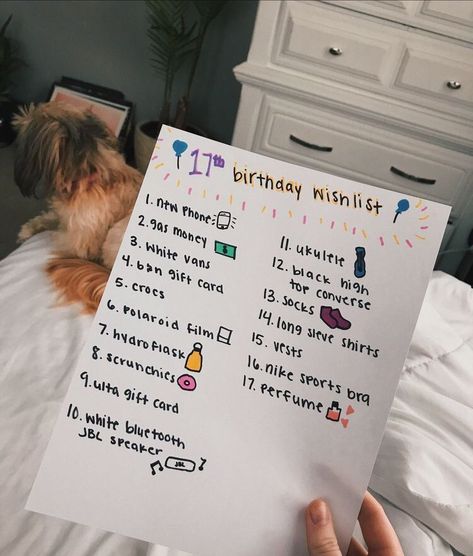 17th birthday wishlist
1. new phone
2. gas money
$
3. white vans
4. b&n gift card
5. crocs
6. polaroid film
7. hydroflask
8. scrunchies
9. ulta gift card
10. white bluetooth
JBL speaker
JBL
11. ukulele
12. black high
top converse
13. socks
14. long sleve shirts
15. vests
16. nike sports bra
17. perfume